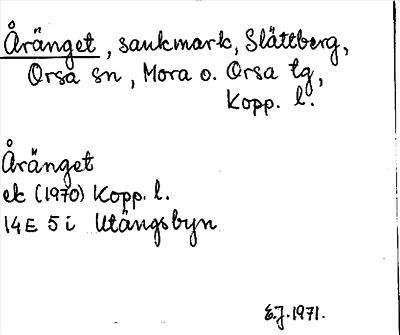 Åränget, sankmark, Slättberg,
Orsa sn, Mora o. Orsa tg,
Kopp. l.
Åränget
ek (1970) Kopp. l.
14E 5i Utängsbyn
E.J. 1971.